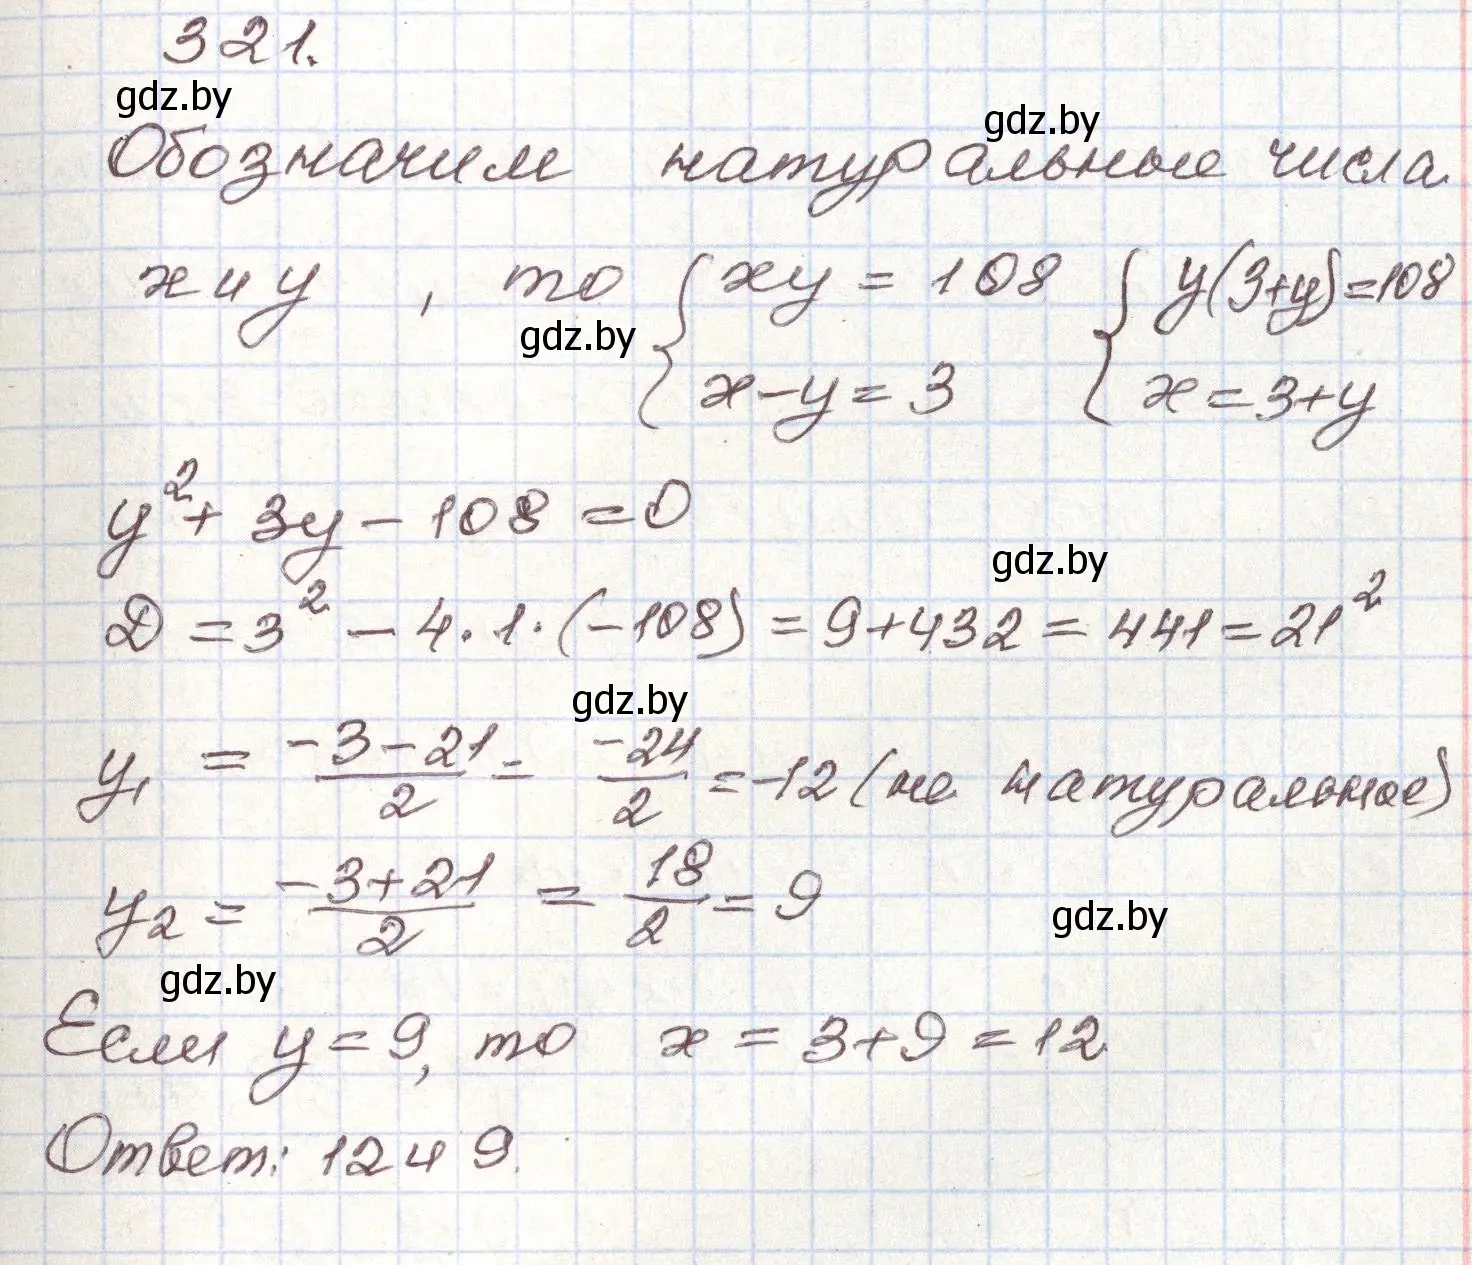 321.
gdz.by
gdz.by
Обозначим натуральные числа
x и y, то { xy = 108 { y(3+y)=108
gdz.by
x - y = 3 x = 3+y
y² + 3y - 108 = 0
gdz.by
D = 3² - 4·1·(-108) = 9+432 = 441 = 21²
gdz.by
y₁ = (-3-21)/2 = -24/2 = -12 (не натуральное)
y₂ = (-3+21)/2 = 18/2 = 9
gdz.by
gdz.by
Если y = 9, то x = 3+9 = 12
Ответ: 12 и 9.